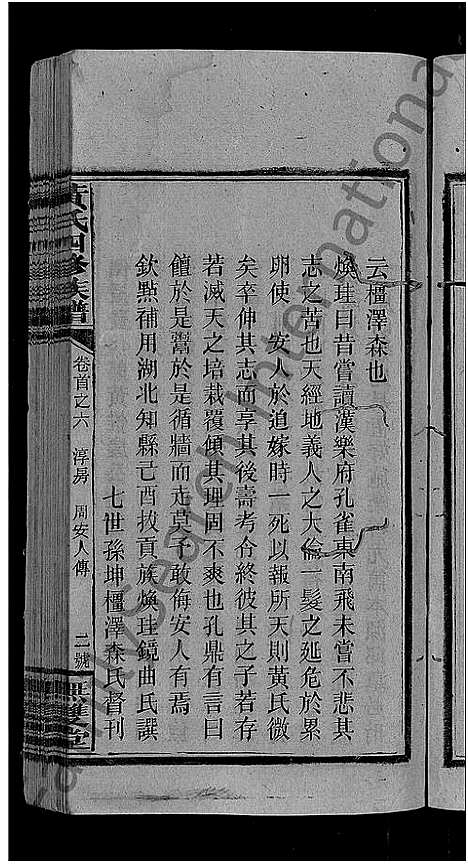 云橿澤森也
煥珪曰昔嘗讀漢樂府孔雀東南飛未嘗不悲其
志之苦也天經地義人之大倫一髮之延危於累
卵使 安人於迫嫁時一死以報所天則黃氏微
矣卒伸其志而享其後壽考令終彼其之子若存
若滅天之培栽覆傾其理固不爽也孔鼎有言曰
饘於是鬻於是循牆而走莫予敢侮安人有焉
欽點補用湖北知縣己酉拔貢族煥珪鏡曲氏譔
七世孫坤橿澤森氏督刊
黃氏四修族譜 卷首之六 淳房 周安人傳 二號 無雙堂